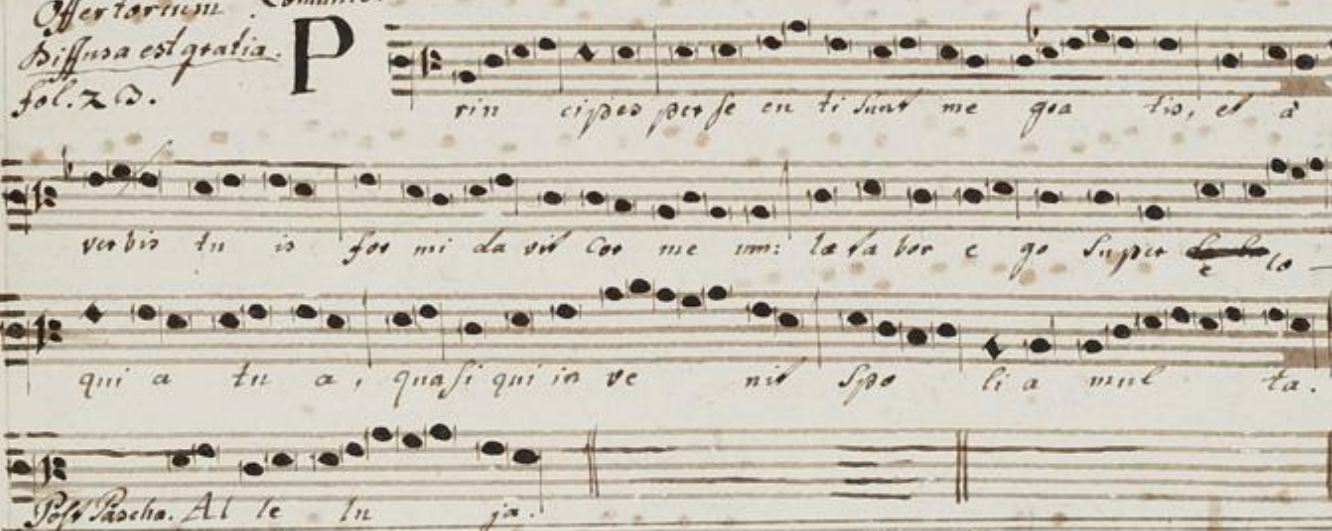 Offertorium. Communio.
Diffusa est gratia.
fol. 2
P rin cipes per se cu ti sunt me gra tis, et à
verbis tu is for mi da vit cor me um: læ ta bor e go super e lo
qui a tu a, quasi qui in ve nit spo li a mul ta.
Post Pascha. Al le lu ja.